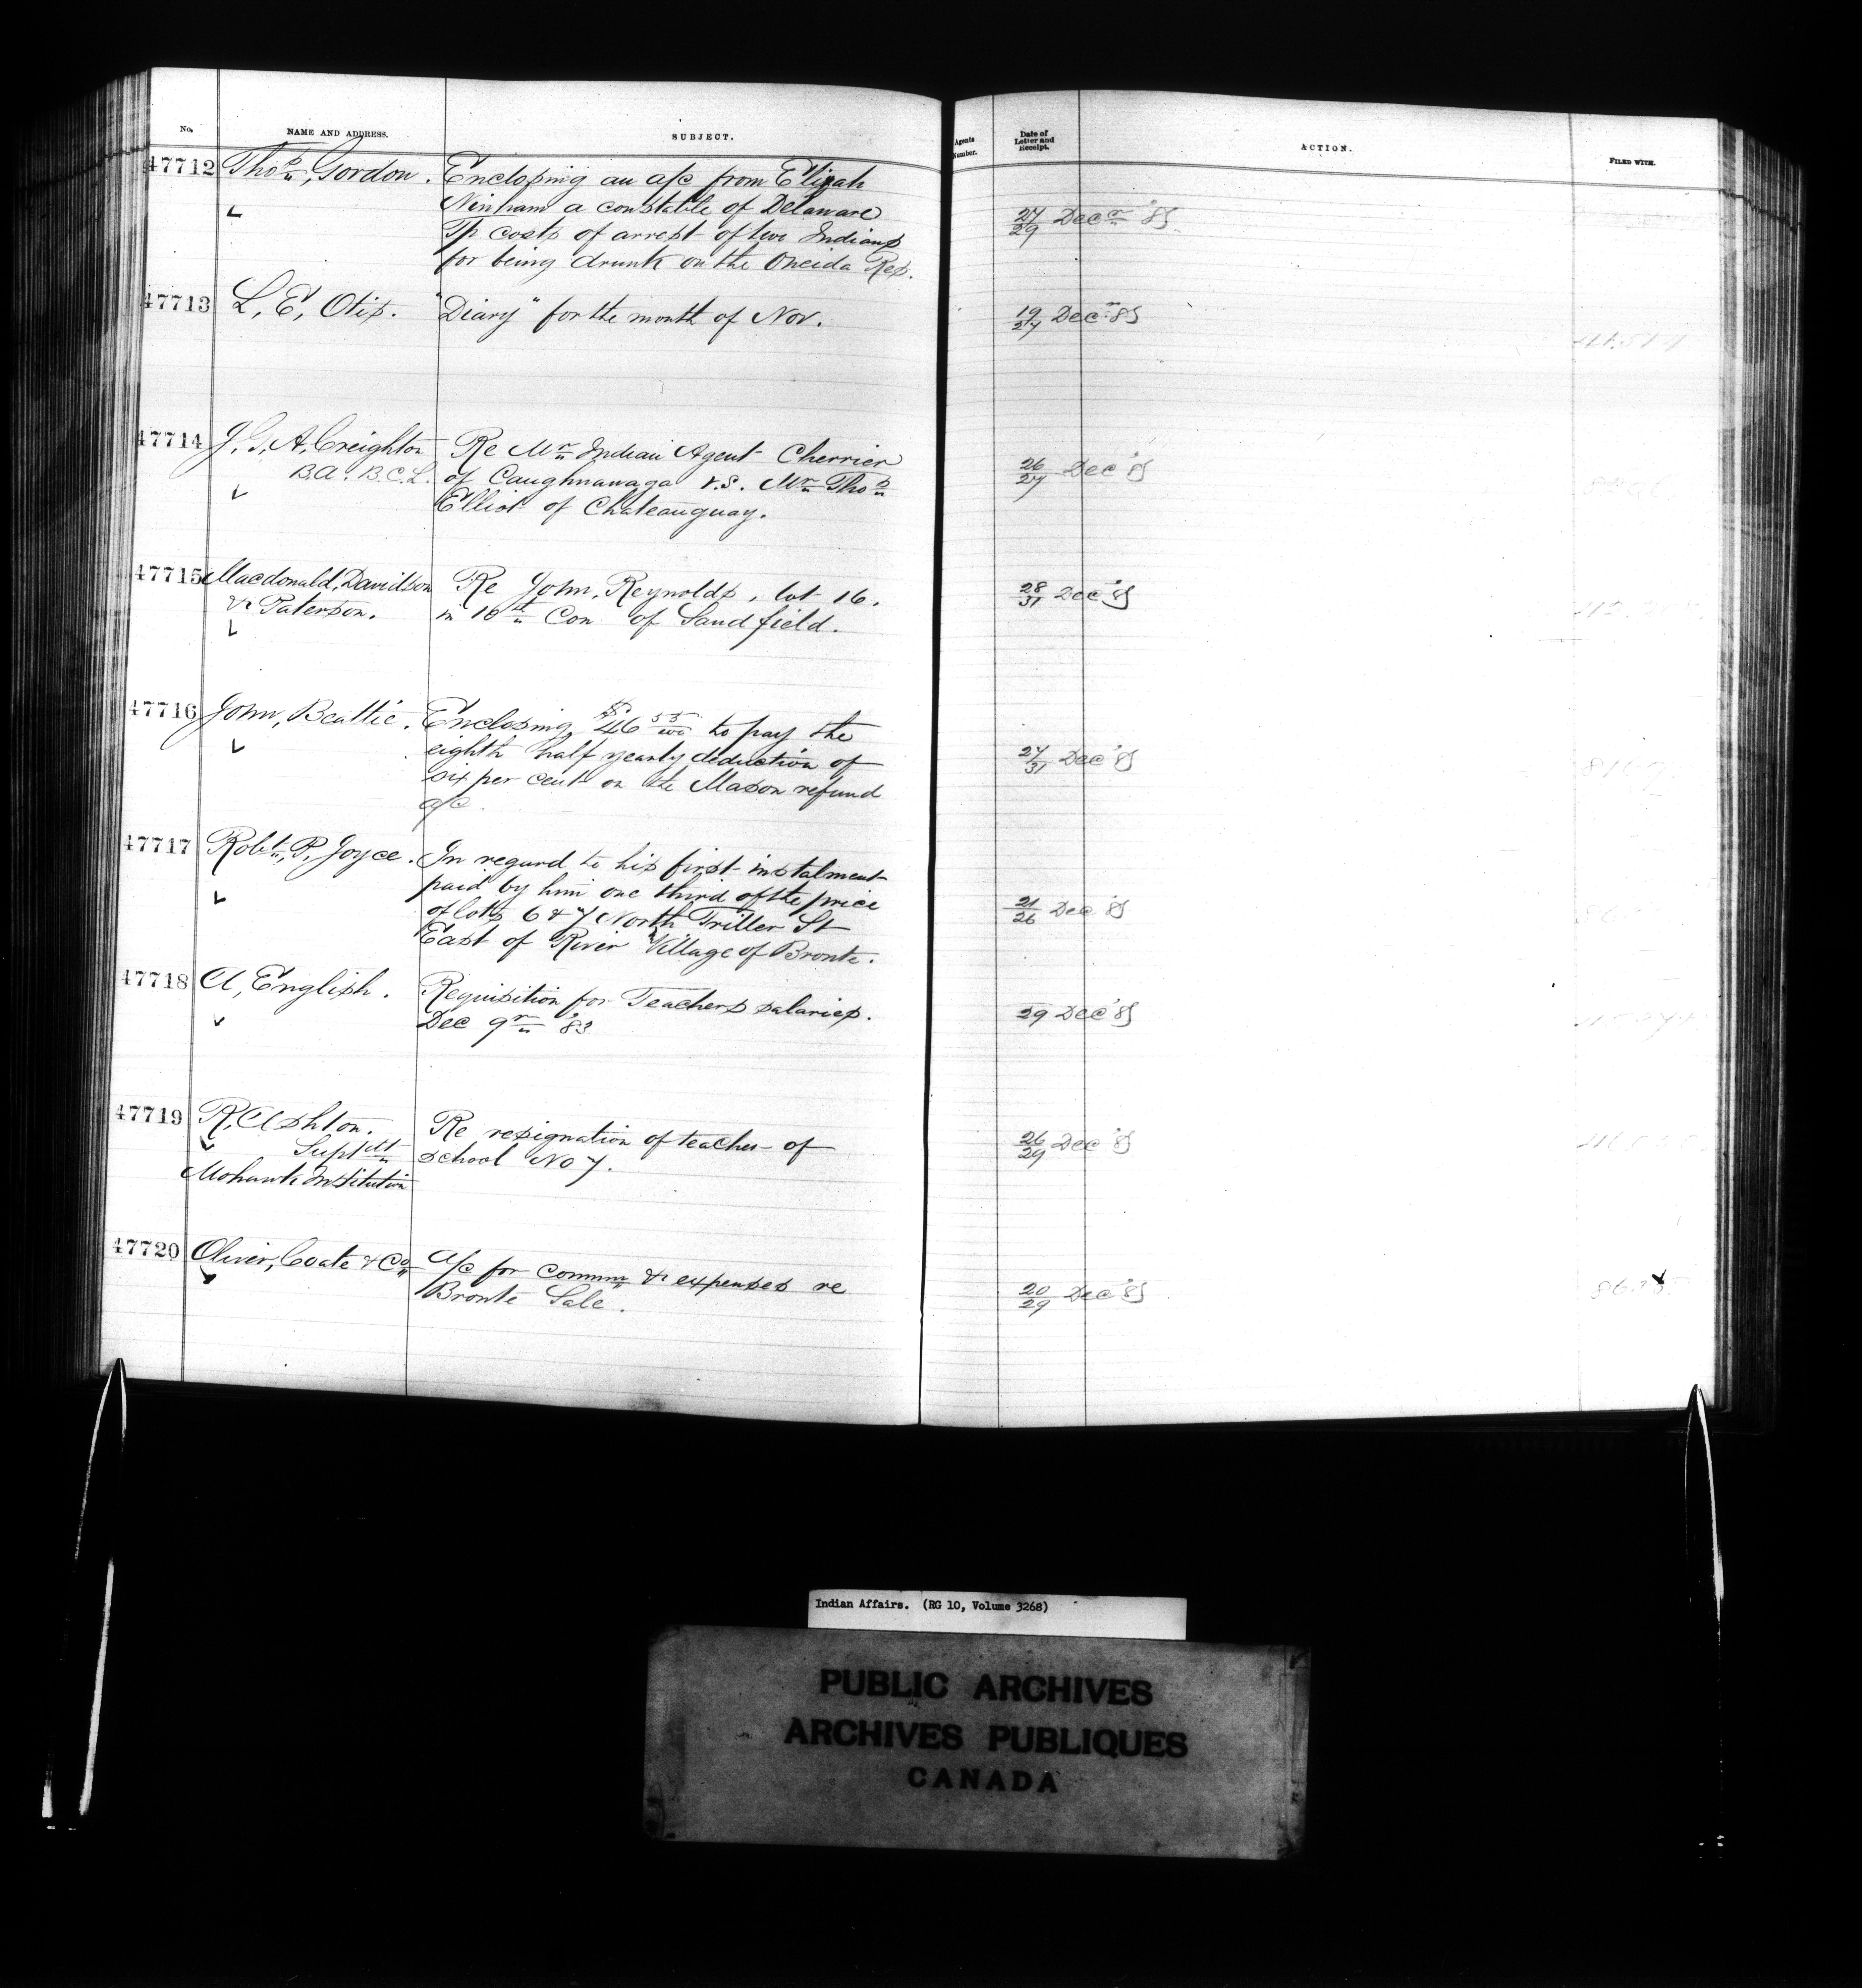 No. NAME AND ADDRESS. SUBJECT. Agents Number. Date of Letter and Receipt. ACTION. FILED WITH.
47712 Thos, Gordon. Enclosing an a/c from Elijah
Ninham a constable of Delaware
Tp costs of arrest of two Indians
for being drunk on the Oneida Res.
27/29 Decr '85
47713 L, E, Otis. "Diary" for the month of Nov.
19/27 Decr 85
47714 J, G, A, Creighton Re Mr Indian Agent Cherrier
B.A. B.C.L. of Caughnawaga v.s. Mr Thos
Elliot of Chateauguay.
26/27 Dec '85
47715 Macdonald, Davidson Re John, Reynolds, lot 16.
& Paterson. in 10th Con of Sandfield.
28/31 Dec '85
47716 John, Beattie. Enclosing $46 55/100 to pay the
eighth half yearly deduction of
six per cent on the Mason refund
a/c.
27/31 Dec '85
47717 Robt, P, Joyce. In regard to his first instalment
paid by him one third of the price
of lots 6 & 7 North Triller St
East of River Village of Bronte.
21/26 Dec '85
47718 A, English. Requisition for Teachers salaries.
Dec qr '83
29 Dec '85
47719 R, Ashton. Re resignation of teacher of
Suptdt school No 7.
Mohawk Institution
26/29 Dec '85
47720 Oliver, Coate & Co A/c for Commn & expenses re
Bronte Sale.
20/29 Dec '85
Indian Affairs. (RG 10, Volume 3268)
PUBLIC ARCHIVES
ARCHIVES PUBLIQUES
CANADA